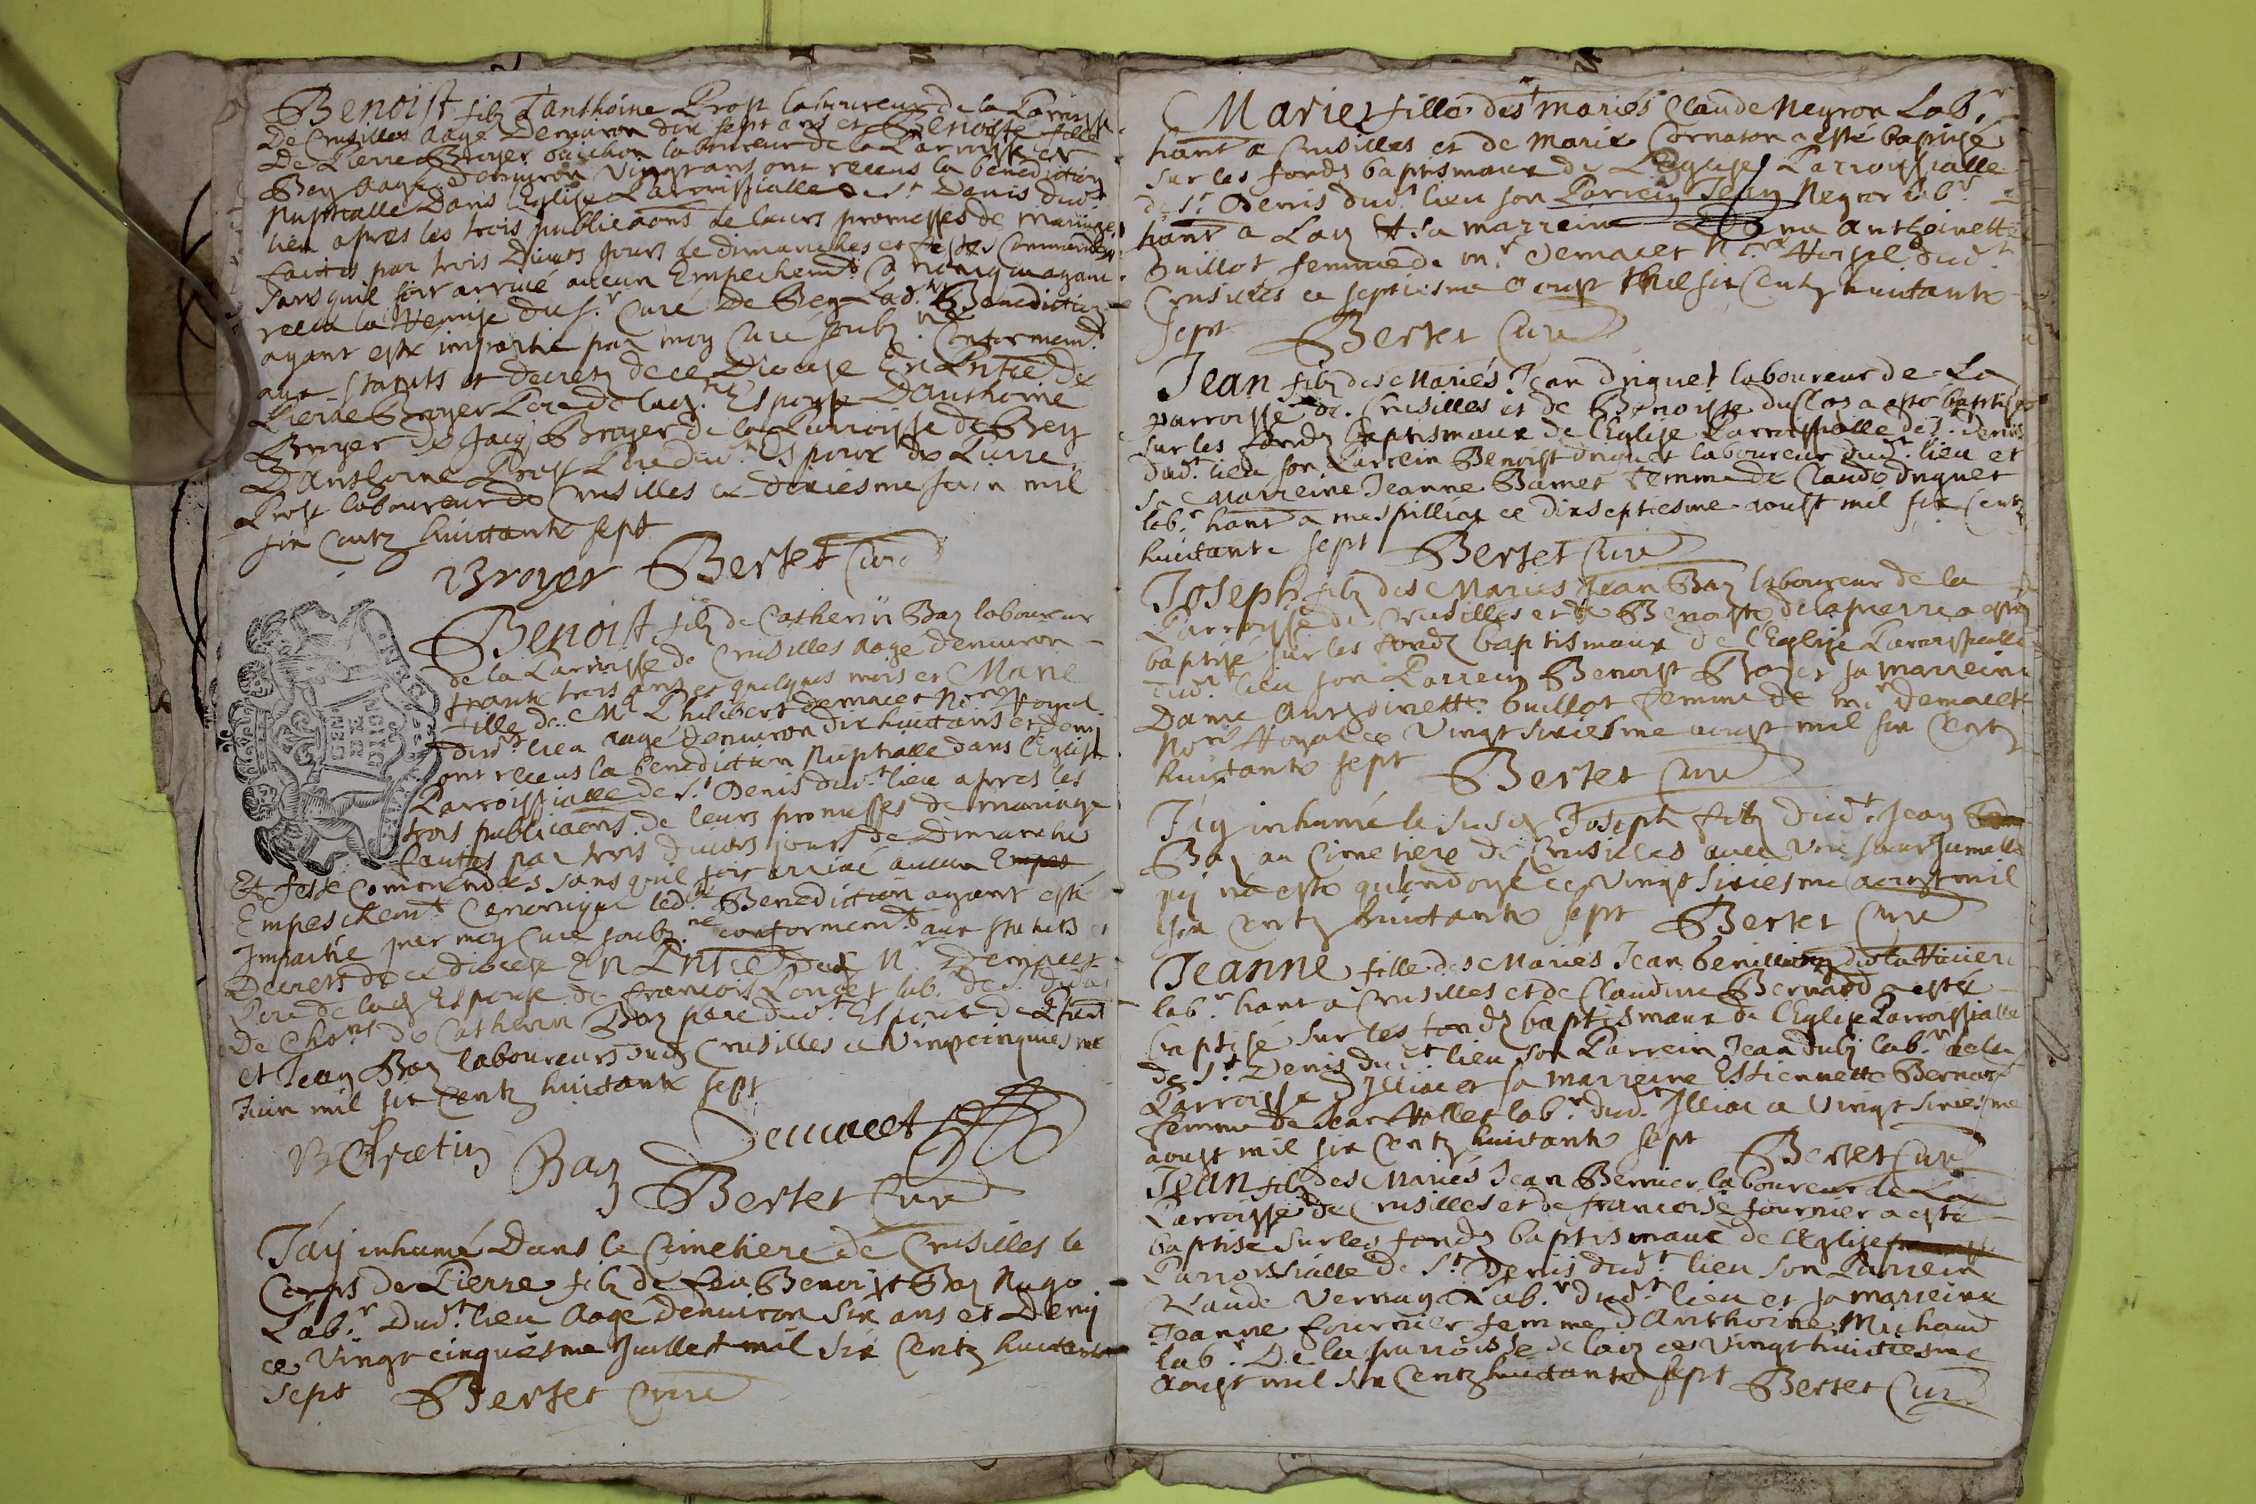 Benoist filz d'anthoine Prost laboureur de la Parroisse
De Crusilles aagé denuiron dix sept ans et Benoiste fille
De Pierre Broyer laboureur de la Parroisse de
Bey aagé denuiron vingt ans ont receus la bénédiction
Nuptialle Dans l'Eglise Parroissialle de St Denis dud.t
lieu apres les trois publicaons de leurs promesses de mariage
faites par trois Divers jours de dimanches et festes Commandées
sans quil soit arriué aucun Empechem.t Canonique ayant
receu la Remise du S.r Curé De Bey Lad.te Benediction
ayant esté impartie par moy Curé soub.né Conformem.t
aux statuts et decretz de ce Diocese En Pntce de
Pierre Broyer Pere de lad. Espouse D'anthoine
Broyer de Jacq Broyer de la Parroisse de Bey
D'anthoine Prost Pere dud.t Espoux de Pierre
Prost laboureur de Crusilles ce dixiesme juin mil
six centz huictante sept
Broyer Bertet Curé
Benoist filz de Catherin Baz laboureur
de la Parroisse de Crusilles aagé denuiron
trante trois ans et quelques mois et Marie
fille de M.e Philibert demacet No.re Royal
dud.t lieu aagé denuiron dix huict ans et demy
ont receus la benediction Nuptialle dans l'Eglise
Parroissialle de S.t Denis dud.t lieu apres les
trois publicaons de leurs promesses de mariage
faites par trois diuers jours de Dimanche
Et feste Commendées sans quil soit arriué aucun Empes
Empeschem.t Canonique led.te Benediction ayant esté
Impartie par moy Curé soub.né conformem.t aux statuts et
Decretz de ce diocese En Pntce dud. M.e Demacet
Pere de lad. Espouse de francois Longet lab.r
De Catherin Baz pere dud.t Espoux de
et Jean Baz laboureurs dud. Crusilles ce vingtcinquiesme
Juin mil six Centz huictante sept
B Chretin Baz Demacet
Bertet Curé
J'ay inhumé Dans le Cimetiere de Crusilles le
Corps de Pierre filz de feu Benoist Baz Nugo
Lab.r Dud.t lieu Aagé denuiron six ans et Demy
ce vingt cinquiesme Juillet mil six Centz huictante
sept Bertet Curé
Marie fille des mariés Claude Neyron Lab.r
hant a Crusilles et de Marie Cornaton a esté baptisé
sur les fondz baptismaux de l'Eglise Parroissialle
de S.t Denis dud.t lieu son Parrein Jean Neyron lab.r
hant a Laiz & sa marreine Dame anthoinette
Guillot femme de M.e Demacet N.re Royal dud.t
Crusilles ce septiesme aoust Mil six Centz huictante
sept Bertet Curé
Jean filz des Mariés Jean driguet laboureur de La
parroisse de Crusilles et de Benoiste duClos a esté baptisé
sur les fondz baptismaux de l'Eglise Parroissialle de S.t Denis
dud.t lieu son Parrein Benoist driguet laboureur dud.t lieu et
sa Marreine Jeanne Bamet femme de Claude driguet
lab.r hant a mespilliaz ce dixseptiesme aoust mil six Centz
huictante sept Bertet Curé
Joseph filz des Mariés Jean Baz laboureur de la
Parroisse de Crusilles et de Benoiste delapierre a esté
baptisé sur les fondz baptismaux de l'Eglise Parroissialle
dud.t lieu son Parrein Benoist Baz et sa marreine
Dame anthoinette Guillot femme de M.e demacet
No.re Royal ce vingt sixiesme aoust mil six Centz
huictante sept Bertet Curé
J'ay inhumé le susd. Joseph filz dud.t Jean
Baz au Cimetiere de Crusilles auec une soeur Jumelle
qui n'a esté qu'ondoyé ce vingt sixiesme aoust mil
six Centz huictante sept Bertet Curé
Jeanne fille des Mariés Jean
lab.r hant a Crusilles et de Claudine Bernard a esté
baptisé sur les fondz baptismaux de l'Eglise Parroissialle
de S.t Denis dud.t lieu son Parrein Jean dubz lab.r de la
Parroisse d'Illiac et sa marreine Estiennette Bernard
femme de Jean lab.r dud.t Illiac ce vingt sixiesme
aoust mil six Centz huictante sept Bertet Curé
Jean filz des Mariés Jean Bernier laboureur de La
Parroisse de Crusilles et de francoise fournier a esté
baptisé sur les fondz baptismaux de l'Eglise
Parroissialle de S.t Denis dud.t lieu son Parrein
Claude Vernay lab.r dud.t lieu et sa marreine
Jeanne fournier femme d'Anthoine Michaud
lab.r De la parroisse de laiz ce vingt huictiesme
Aoust mil six Centz huictante sept Bertet Curé